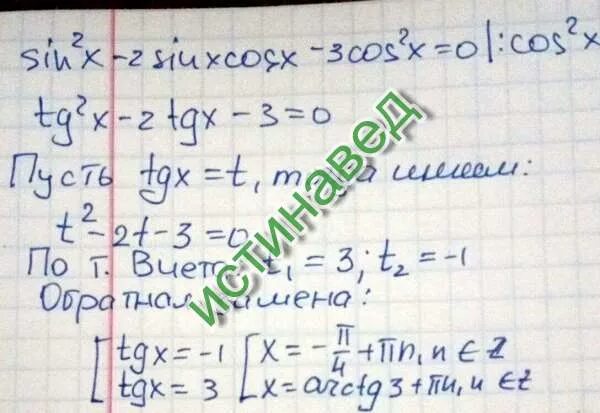 sin²x - 2 sinxcosx - 3cos²x = 0 |: cos²x
tg²x - 2 tgx - 3 = 0
Пусть tgx = t, имеем:
t² - 2t - 3 = 0
По т. Виета t₁ = 3; t₂ = -1
Обратная замена:
[ tgx = -1 [ x = -π/4 + πn, n ∈ Z
[ tgx = 3 [ x = arctg3 + πn, n ∈ Z
истинавед